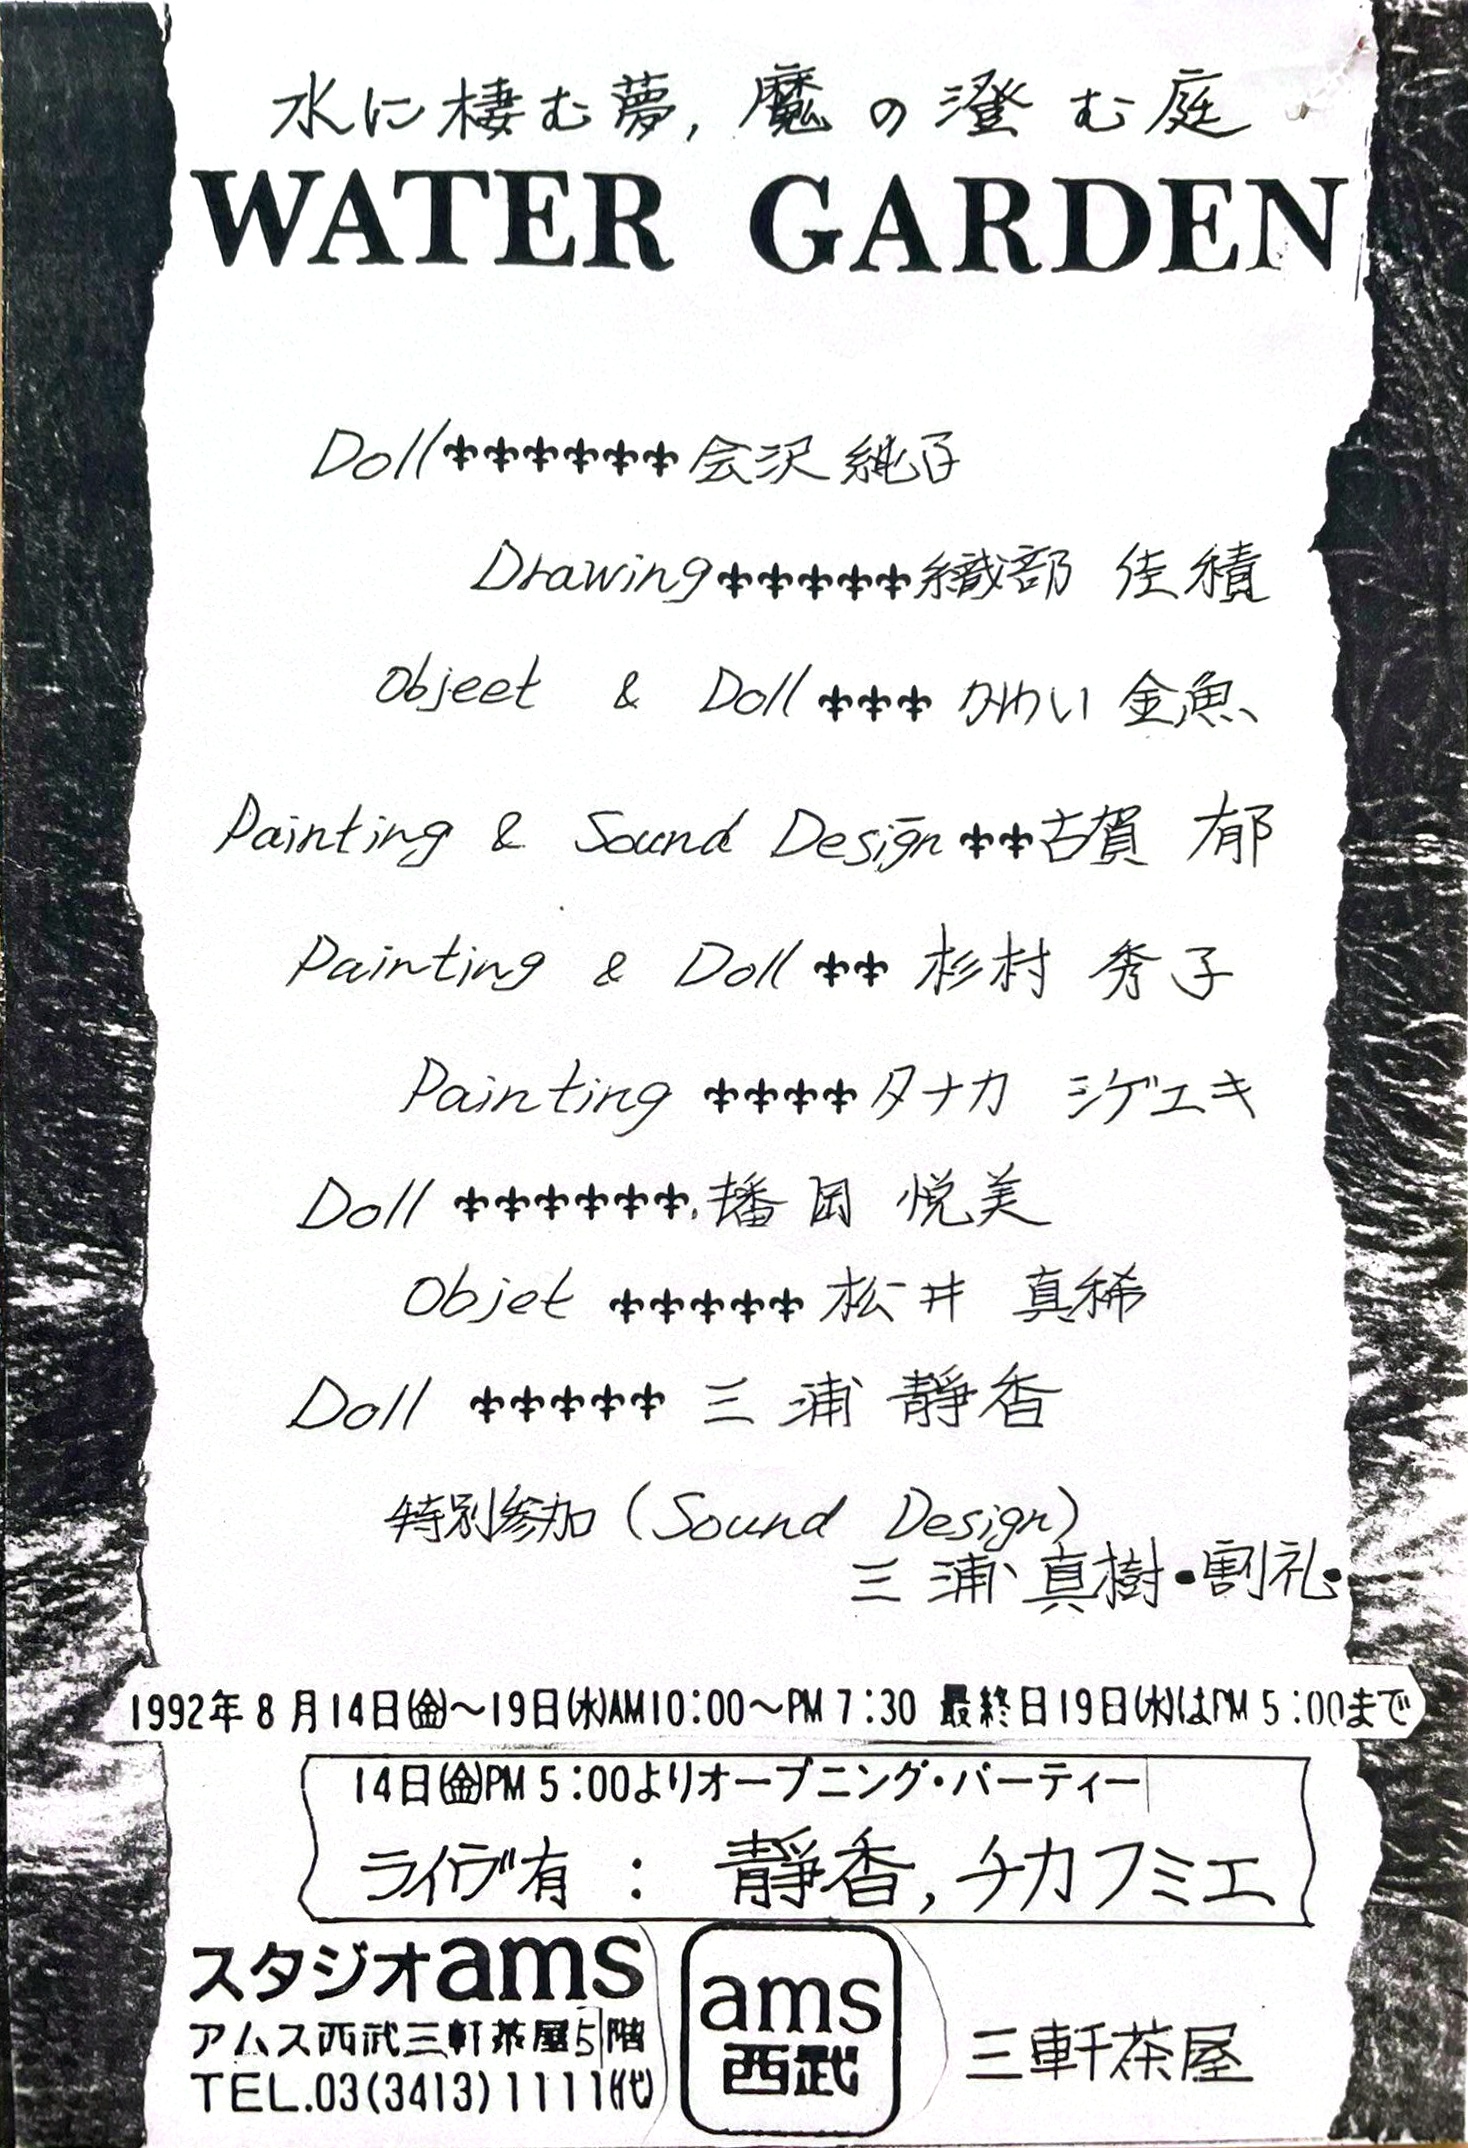 水に棲む夢,魔の澄む庭
WATER GARDEN
Doll⚜⚜⚜⚜⚜⚜会沢 純子
Drawing⚜⚜⚜⚜⚜織部 佳積
Objeet & Doll⚜⚜⚜かわい 金魚
Painting & Sound Design⚜⚜古賀 郁
Painting & Doll⚜⚜杉村 秀子
Painting⚜⚜⚜⚜タナカ シゲエキ
Doll⚜⚜⚜⚜⚜⚜播岡 悦美
Objet⚜⚜⚜⚜⚜松井 真稀
Doll⚜⚜⚜⚜⚜三浦 靜香
特別参加(Sound Design)
三浦 真樹・割礼・
1992年8月14日(金)〜19日(水)AM10:00〜PM7:30 最終日19日(水)はPM5:00まで
14日(金)PM5:00よりオープニング・パーティー
ライヴ有:靜香,チカフミエ
スタジオams
アムス西武三軒茶屋5階
TEL.03(3413)1111(代)
ams
西武
三軒茶屋